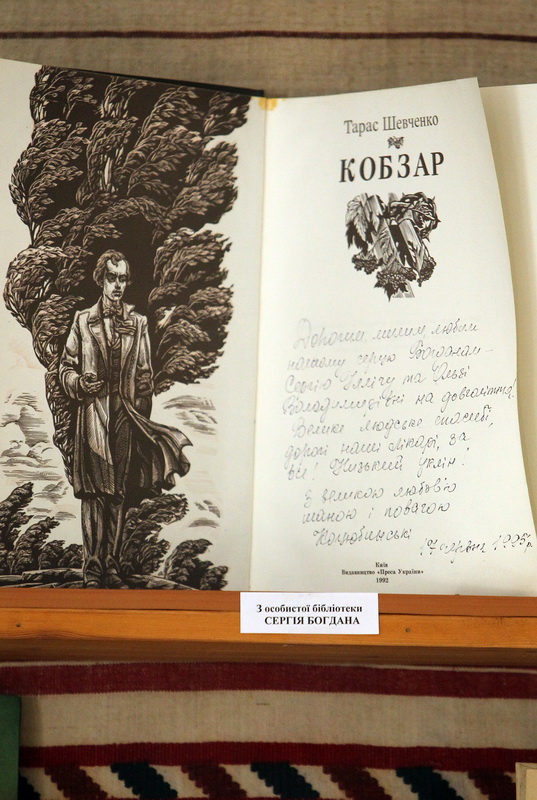 Тарас Шевченко
КОБЗАР
Дорогим, милим, любим
нашому серцю Богданам –
Сергію Іллічу та Ользі
Володимирівні на довголіття!
Велике людське спасибі,
дорогі наші лікарі, за
все! Низький уклін!
З великою любов'ю
шаною і повагою
Коцюбинські
1995р.
Київ
Видавництво «Преса України»
1992
З особистої бібліотеки
СЕРГІЯ БОГДАНА